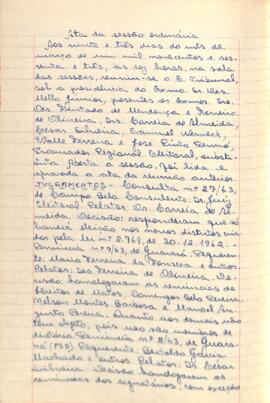 Ata da sessão ordinária
Aos vinte e três dias do mês de
março de um mil novecentos e ses-
senta e três, às dez horas, na sala
das sessões, reuniu-se o E. Tribunal,
sob a presidência do Exmo. Sr. Des.
Mello Junior, presentes os Exmos. Srs.
Des. Furtado de Mendonça e Ferreira
de Oliveira, Drs. Correia de Almeida,
Cesar Silveira, Samuel Werneck,
Valle Ferreira e José Pinto
Procurador Regional Eleitoral, substi-
tuto. Aberta a sessão, foi lida e
aprovada a ata da reunião anterior.
JULGAMENTOS - Consulta nº 27/63,
de Campo Belo. Consulente: Dr. Juiz
Eleitoral. Relator: Dr. Correia de Al-
meida. Decisão: responderam que só
haverá eleição nos novos distritos cria-
dos pela lei nº 2.764, de 30-12-1962.-
Renúncia nº 7/63, de Guarará. Requeren-
te: Maria Ferreira da Fonseca e outros.
Relator: Des. Ferreira de Oliveira. De-
cisão: homologaram as renúncias de
Nelson Montes Barbosa e Manoel Au-
gusto Quanto aos demais não
tem objeto, pois não são membros de
diretório. Renúncia nº 8/63, de Guara-
rá (PSD). Requerente: Garcia
Machado e outros. Relator: Dr. Cesar
Silveira. Decisão: homologaram as
renúncias dos signatários, com exceção